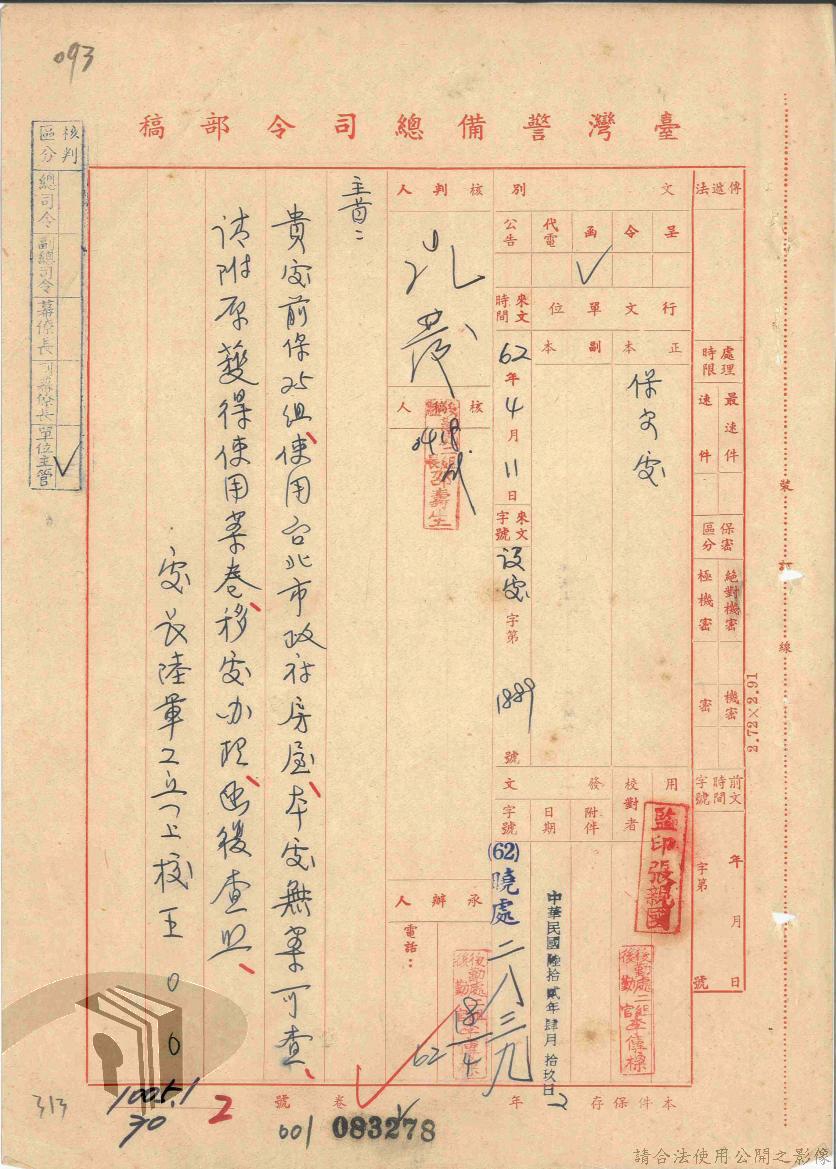 093
臺灣警備總司令部稿
核判區分
總司令
副總司令
幕僚長
副幕僚長
單位主管
傳遞法
處理時限
最速件
速件
保密區分
絕對機密
極機密
機密
密
前文時間字號
年
月
日
字第
號
文別
呈
令
函
代電
公告
行文單位
正本
副本
保安處
來文時間
62年4月11日
來文字號
設處字第1889號
用
校對者
監印張親國
發文
附件
日期
中華民國陸拾貳年肆月拾玖日
字號
(62)曉處二八三九
核判人
核稿人
承辦人
電話:
62
主旨:
貴處前保25組使用台北市政府房屋、本處無案可查、
請附原獲得使用案卷、移處辦理、函復查照、
處長陸軍工兵上校王00
本件保存
年
卷
號
1005.1
30
2
001
083278
313
裝訂線
2.72×2.91
請合法使用公開之影像